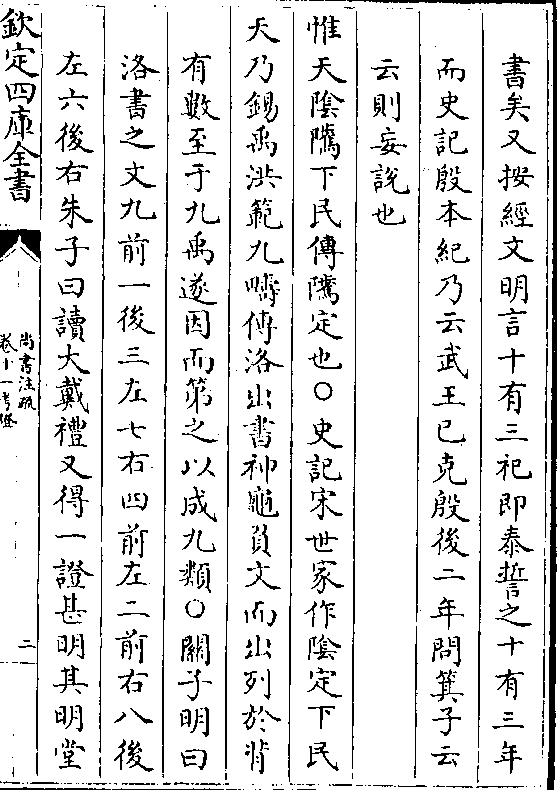 書矣又按經文明言十有三祀即泰誓之十有三年
而史記殷本紀乃云武王已克殷後二年問箕子云
云則妄說也
惟天陰騭下民傳騭定也○史記宋世家作陰定下民
天乃錫禹洪範九疇傳洛出書神龜負文而出列於背
有數至于九禹遂因而第之以成九類○關子明曰
洛書之文九前一後三左七右四前左二前右八後
左六後右朱子曰讀大戴禮又得一證甚明其明堂
欽定四庫全書
尚書注疏
卷十一考證
二